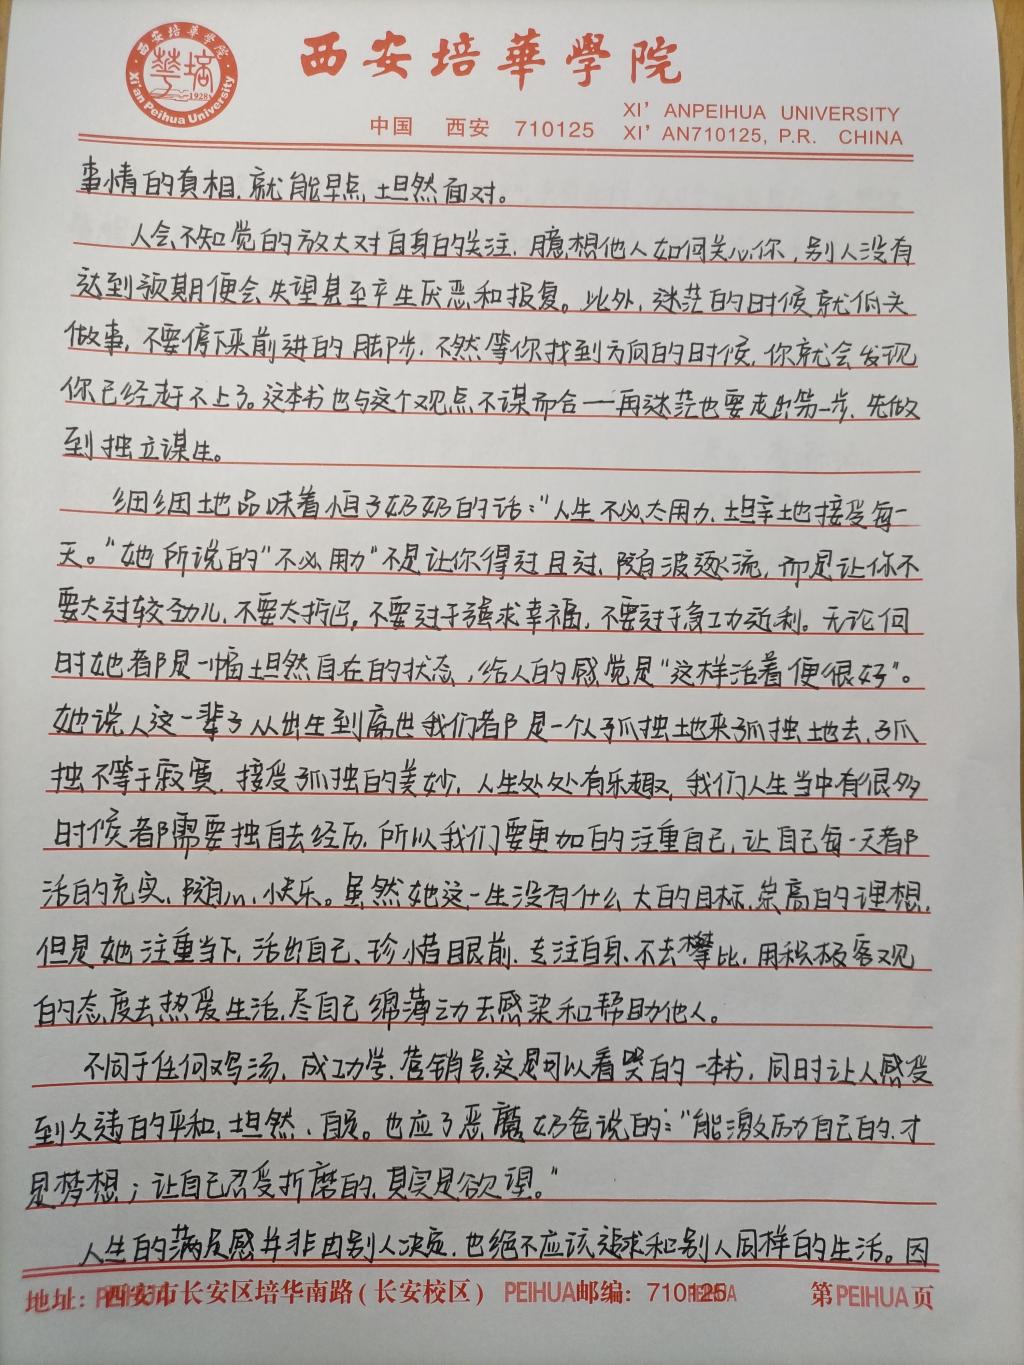 西安培華學院
·西安培華学院·
1928
Xi'an Peihua University
XI' ANPEIHUA UNIVERSITY
中国 西安 710125 XI' AN710125, P.R. CHINA
事情的真相,就能早点,坦然面对。
人会不知觉的放大对自身的关注,臆想他人如何关心你,别人没有
达到预期便会失望甚至产生厌恶和报复。此外,迷茫的时候就低头
做事,不要停下来前进的脚步,不然等你找到方向的时候,你就会发现
你已经赶不上了。这本书也与这个观点不谋而合——再迷茫也要走出第一步,先做
到独立谋生。
细细地品味着恒子奶奶的话:“人生不必太用力,坦率地接受每一
天。”她所说的“不必用力”不是让你得过且过,随波逐流,而是让你不
要太过较劲儿,不要太折,不要过于强求幸福,不要过于急工功近利。无论何
时她都是一幅坦然自在的状态,给人的感觉是“这样活着便很好”。
她说人这一辈子从出生到离世我们都是一个人孤独地来孤独地去,孤
独不等于寂寞,接受孤独的美妙,人生处处有乐趣,我们人生当中有很多
时候都需要独自去经历,所以我们要更加的注重自己,让自己每一天都
活的充实,随心,快乐。虽然她这一生没有什么大的目标,崇高的理想,
但是她注重当下,活出自己、珍惜眼前,专注自身,不去攀比,用积极客观
的态度去热爱生活,尽自己绵薄之力去感染和帮助他人。
不同于任何鸡汤,成功学,营销号,这是可以看哭的一本书,同时让人感受
到久违的平和,坦然、自足。也应了恶魔奶爸说的:“能激励自己的,才
是梦想;让自己忍受折磨的,其实是欲望。”
人生的满足感并非由别人决定,也绝不应该追求和别人同样的生活。因
地址: 西安市长安区培华南路(长安校区) PEIHUA邮编: 710125 第PEIHUA页